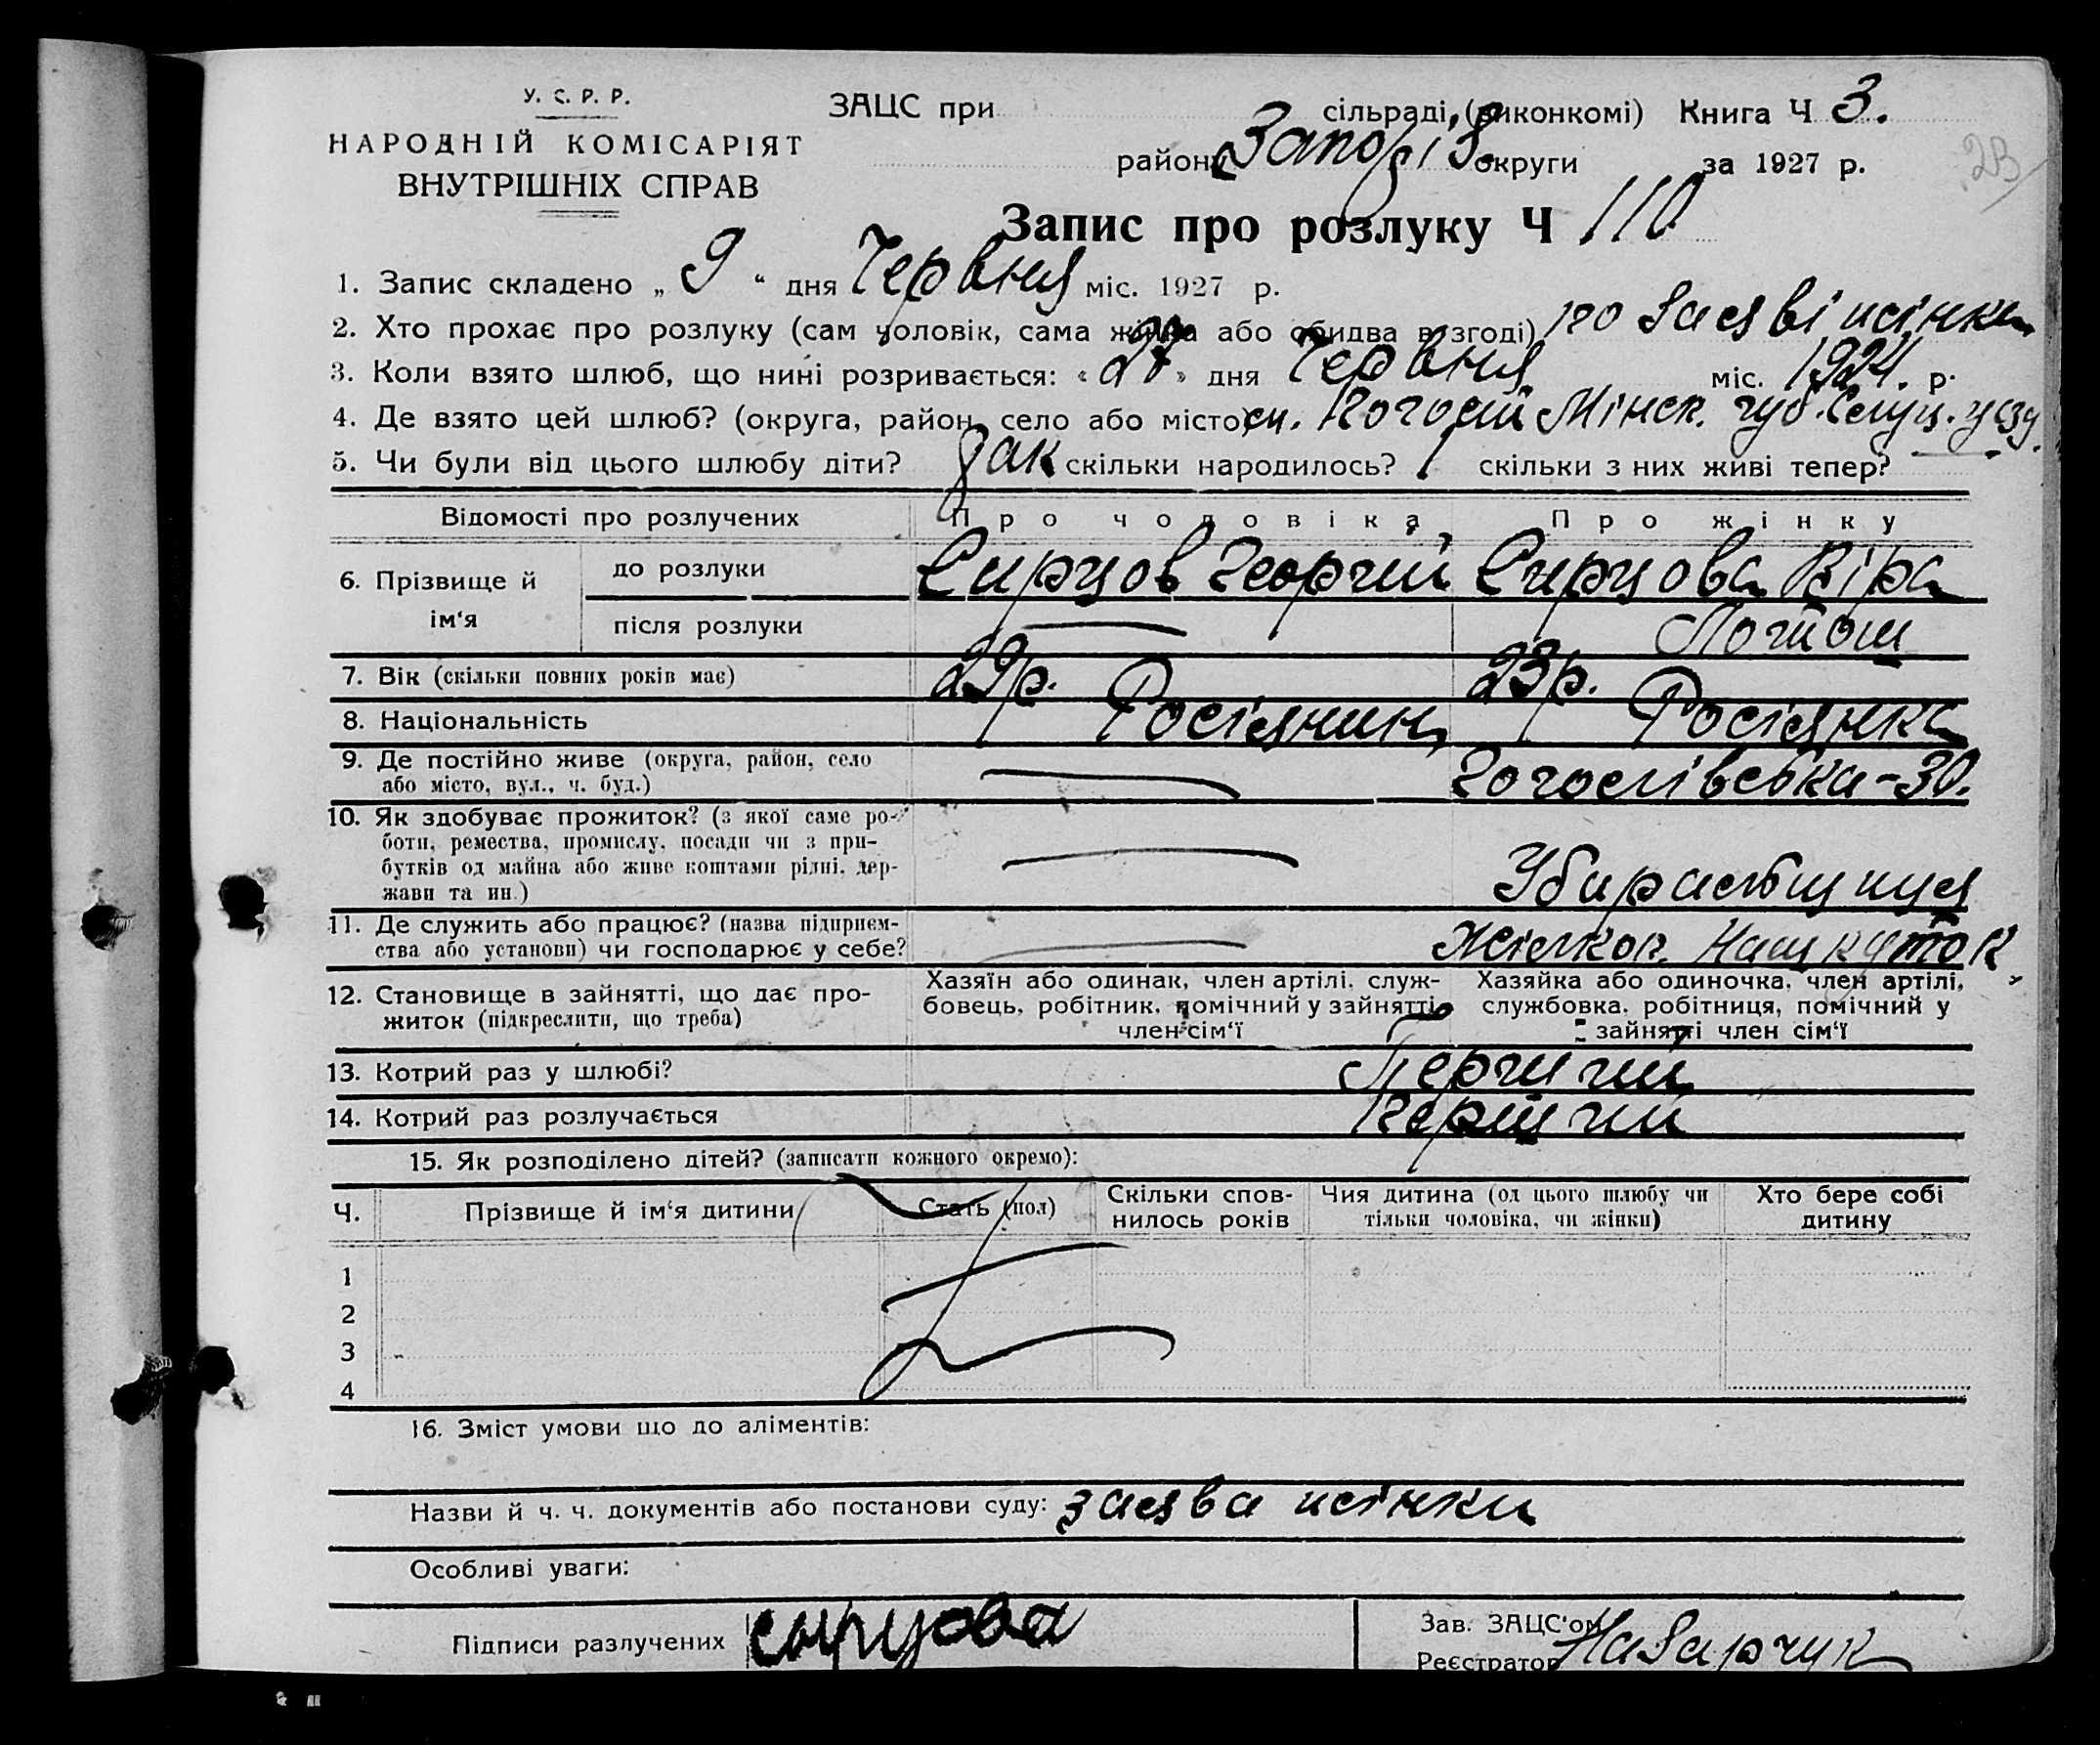 У. С. Р. Р.
НАРОДНІЙ КОМІСАРІЯТ
ВНУТРІШНІХ СПРАВ
ЗАЦС при сільраді, (виконкомі) Книга Ч 3.
району Запоріз. округи за 1927 р.
23
Запис про розлуку Ч 110
1. Запис складено „ 9 “ дня Червня міс. 1927 р.
2. Хто прохає про розлуку (сам чоловік, сама жінка або обидва в згоді) по заяві жінки
3. Коли взято шлюб, що нині розривається: « 27 » дня Червня міс. 1924. р.
4. Де взято цей шлюб? (округа, район, село або місто) см. Погост Мінск. губ. Слуц. уєзду.
5. Чи були від цього шлюбу діти? так скільки народилось? 1 скільки з них живі тепер? —
Відомості про розлучених Про чоловіка Про жінку
6. Прізвище й ім‘я
до розлуки Сирцов Георгій Сирцова Віра
після розлуки —
7. Вік (скільки повних років має) 29 р. 23 р.
8. Національність Росіянин Росіянка
9. Де постійно живе (округа, район, село
або місто, вул., ч. буд.) — -30.
10. Як здобуває прожиток? (з якої саме ро-
боти, ремества, промислу, посади чи з при-
бутків од майна або живе коштами рідні, дер-
жави та ин.) —
11. Де служить або працює? (назва підприєм-
ства або установи) чи господарює у себе? — Жілкоп.
12. Становище в зайнятті, що дає про-
житок (підкреслити, що треба)
Хазяїн або одинак, член артілі, служ-
бовець, робітник, помічний у зайнятті
член сім‘ї
Хазяйка або одиночка, член артілі,
службовка, робітниця, помічний у
зайнятті член сім‘ї
13. Котрий раз у шлюбі? Перший
14. Котрий раз розлучається перший
15. Як розподілено дітей? (записати кожного окремо):
Ч. Прізвище й ім‘я дитини Стать (пол) Скільки спов-
нилось років Чия дитина (од цього шлюбу чи
тільки чоловіка, чи жінки) Хто бере собі
дитину
1
2
3
4
16. Зміст умови що до аліментів:
Назви й ч. ч. документів або постанови суду: заява жінки
Особливі уваги:
Підписи разлучених Сырцова
Зав. ЗАЦС‘ом
Реєстратор Назарчук